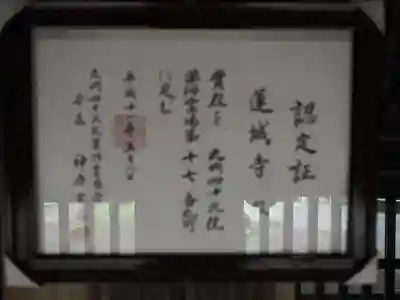 認定証
蓮城寺 殿
貴殿を 九州四十九院
薬師霊場第 十七 番札所
に定む
平成十一年五月八日
九州四十九院薬師霊場会
会長